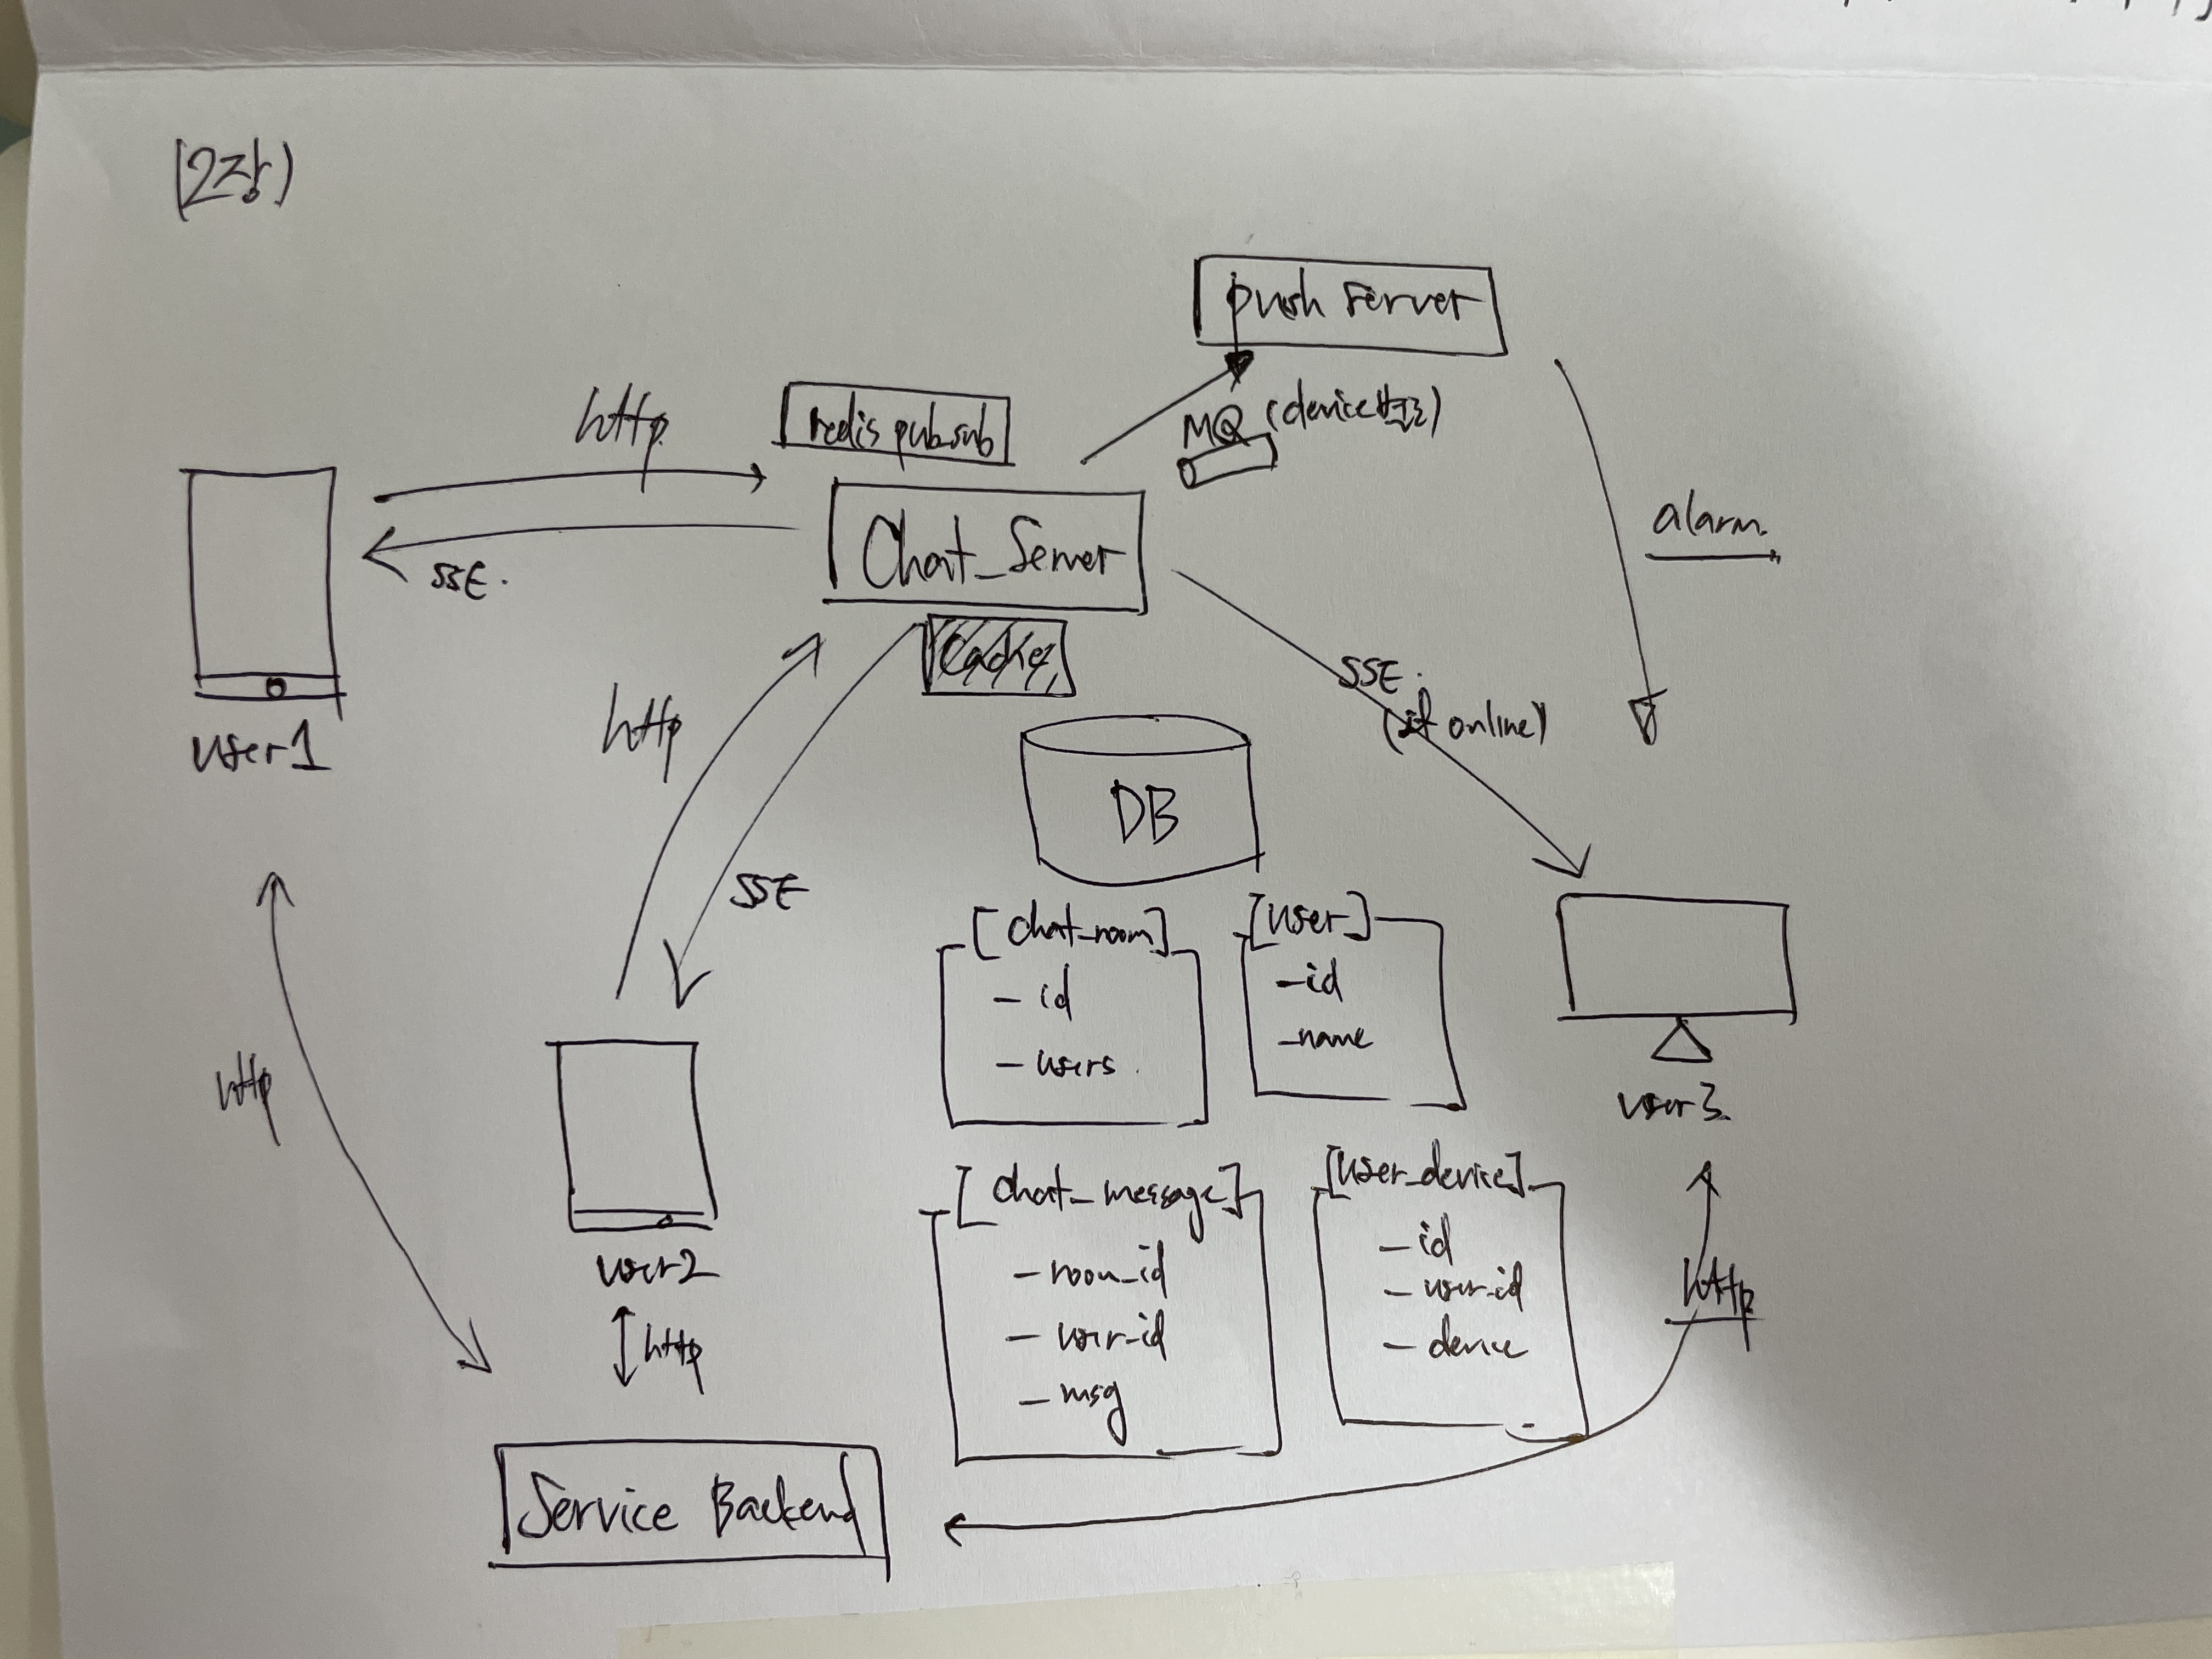 (2장)
push server
http
redis pub_sub
MQ (device별로)
Chat_Server
SSE.
alarm.
http
SSE.
(if online)
user1
DB
SSE
[chat_room]
- id
- users
[user]
- id
- name
user3.
http
[chat_message]
- room_id
- user_id
- msg
[user_device]
- id
- user_id
- device
user2
http
http
Service Backend